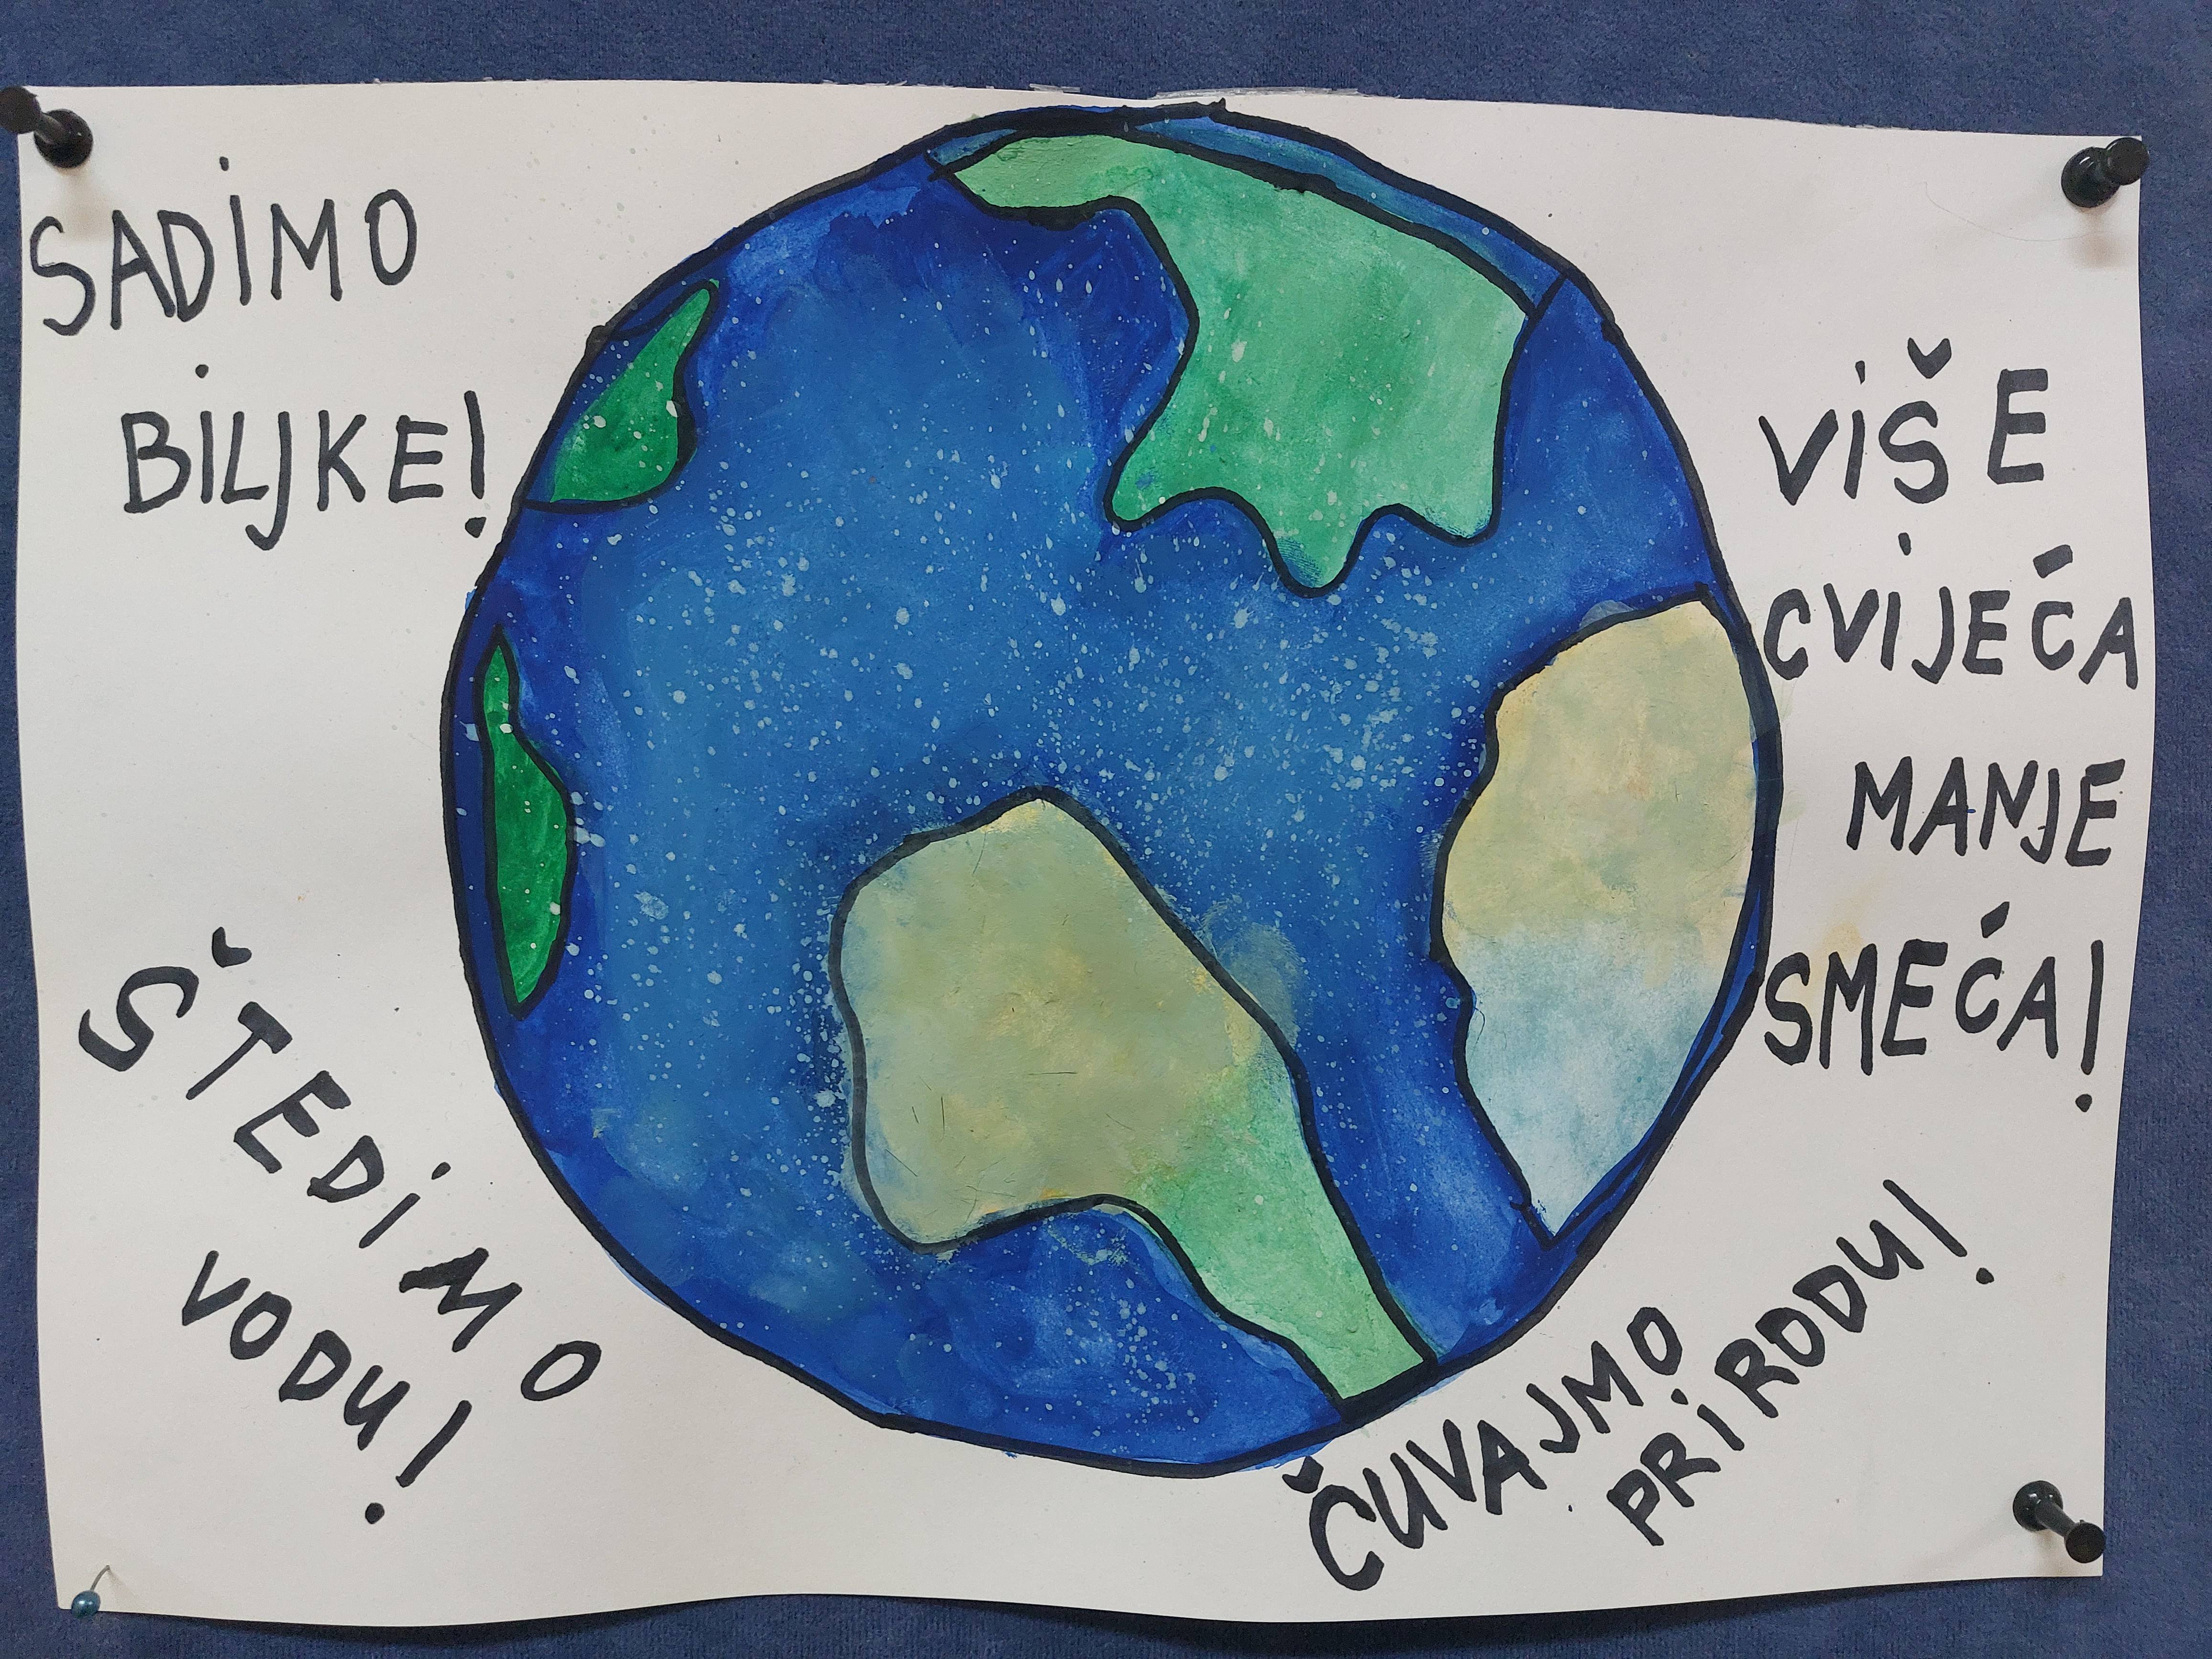 SADIMO
BILJKE!
VIŠE
CVIJEĆA
MANJE
SMEĆA!
ŠTEDIMO
VODU!
ČUVAJMO
PRIRODU!